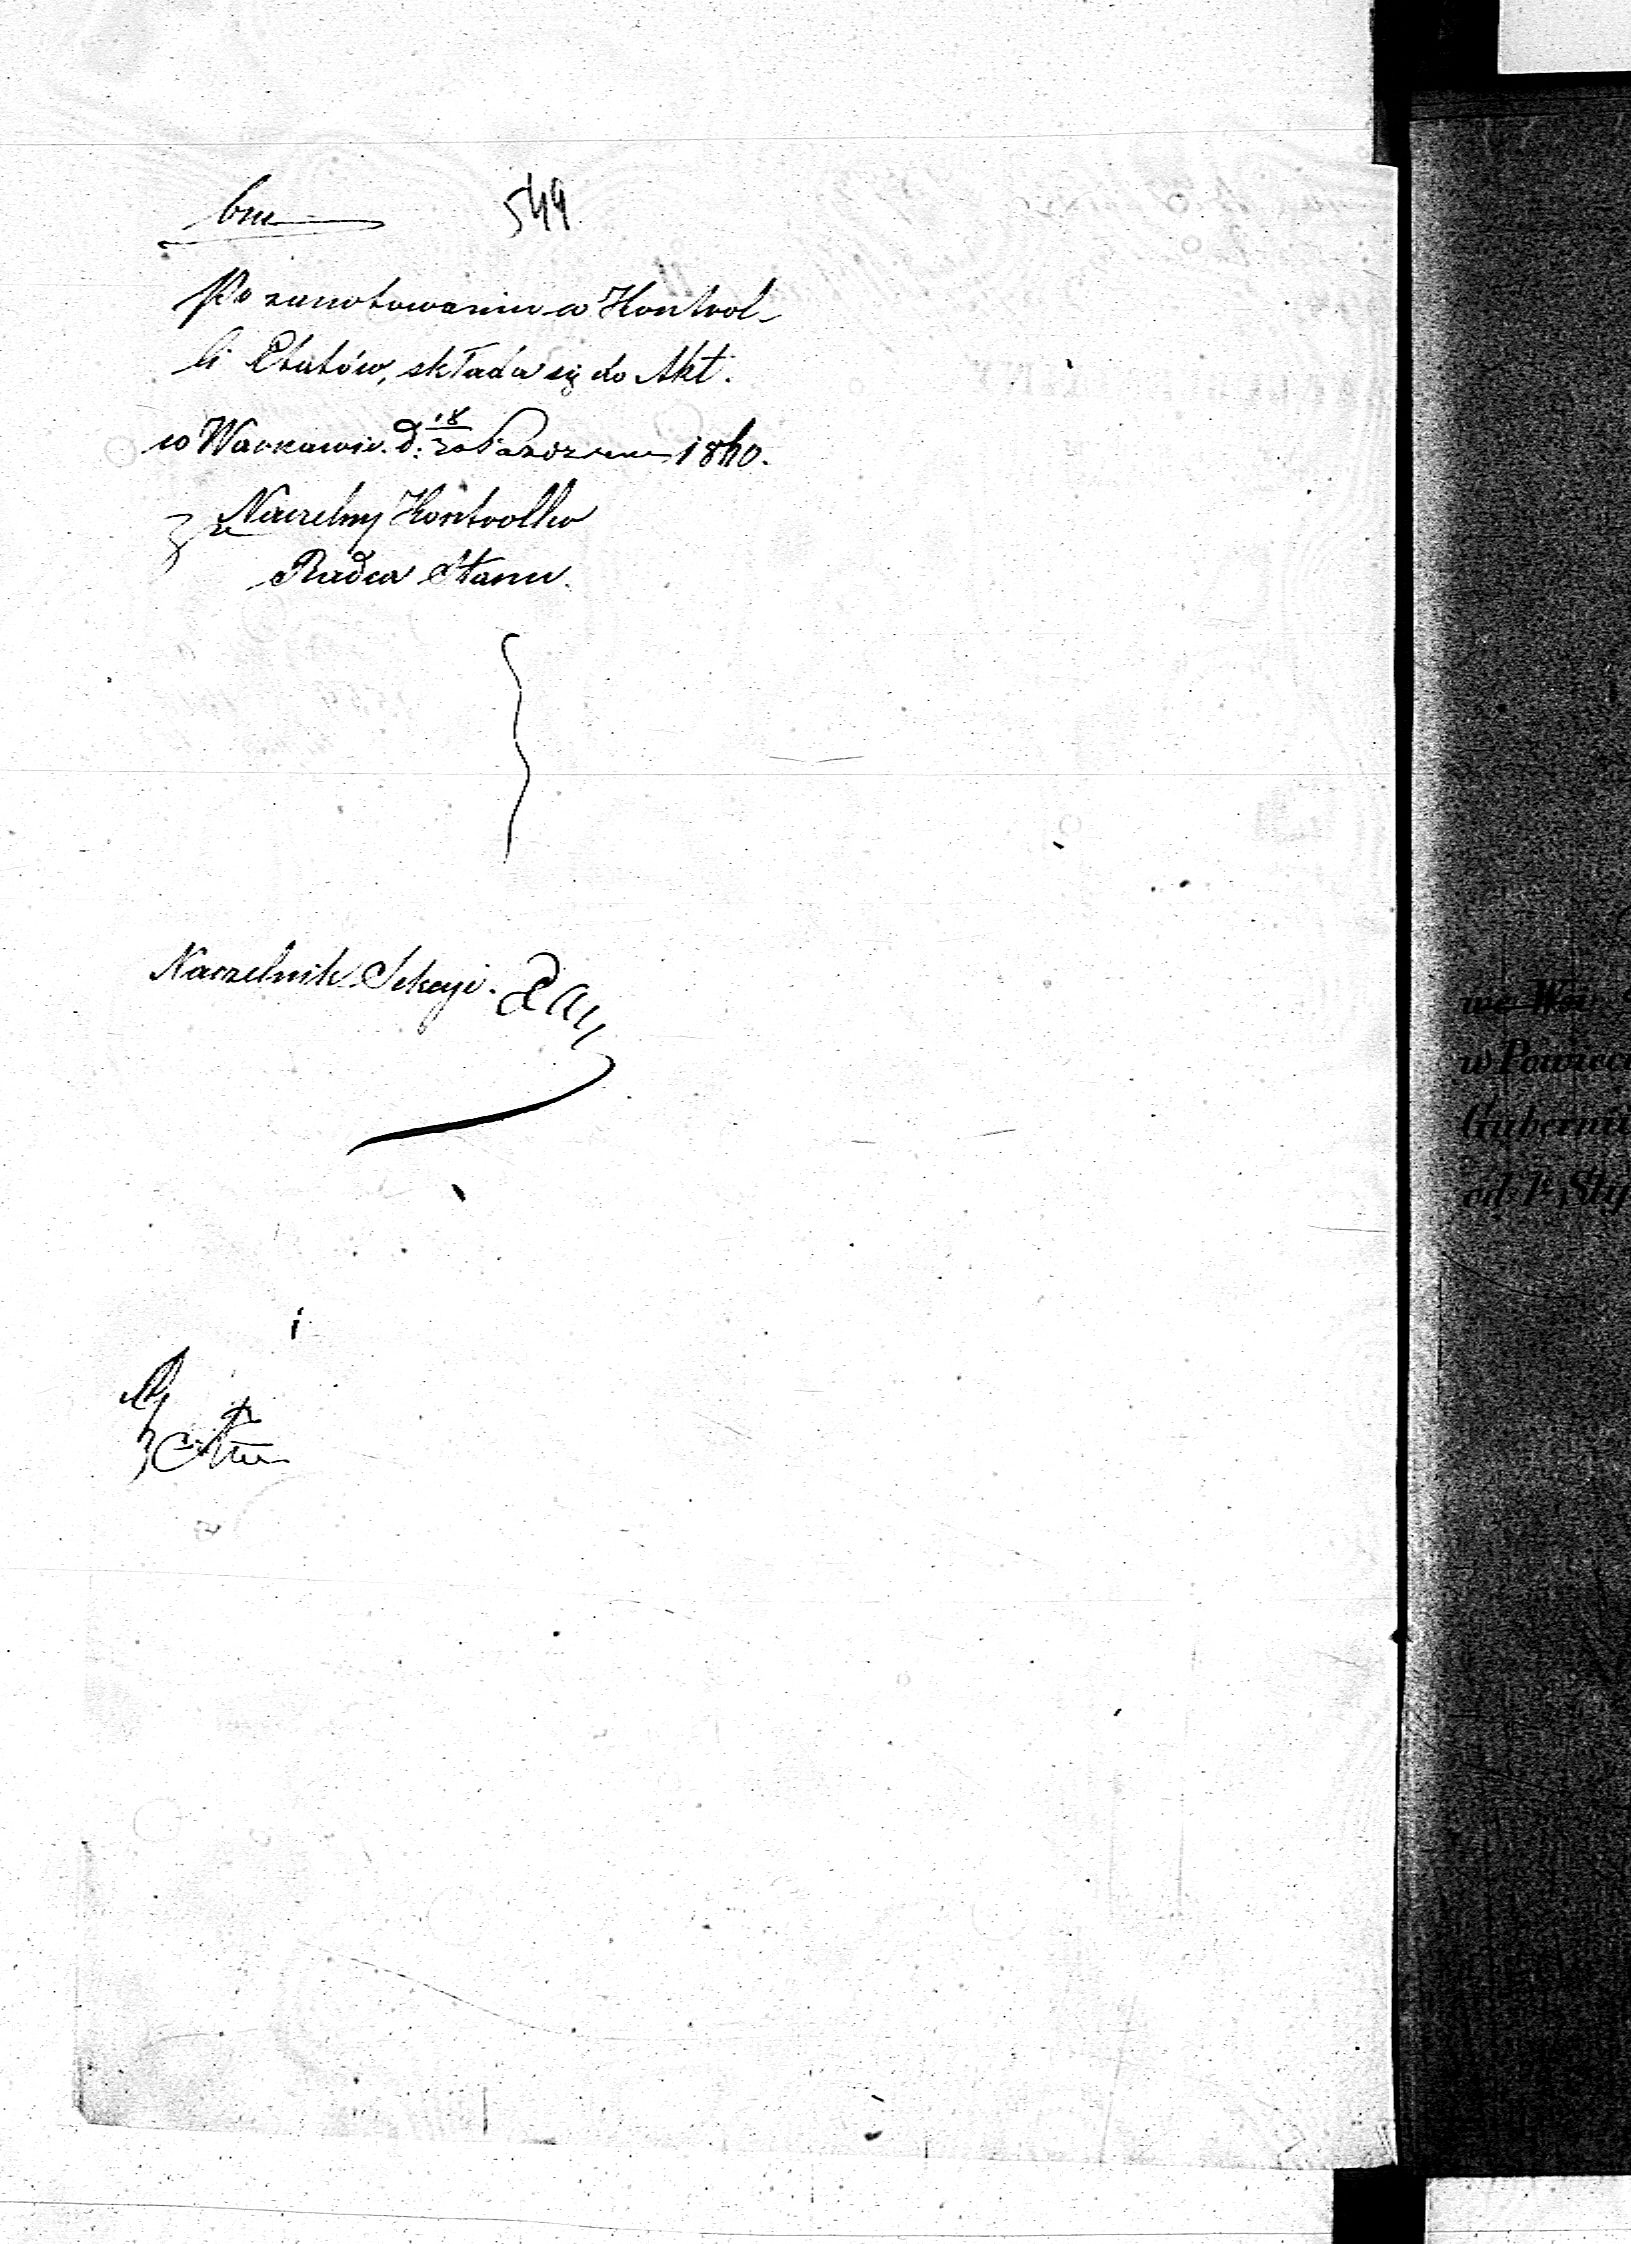 549
Po zanotowaniu w Kontrol-
li Etatów, składa się do Akt.
w Warszawie d: 18/30 Października 1860.
za Naczelny Kontroller
Radca Stanu.
Naczelnik Sekcyi.
w Powiec
Gubernii
od 1 Sty